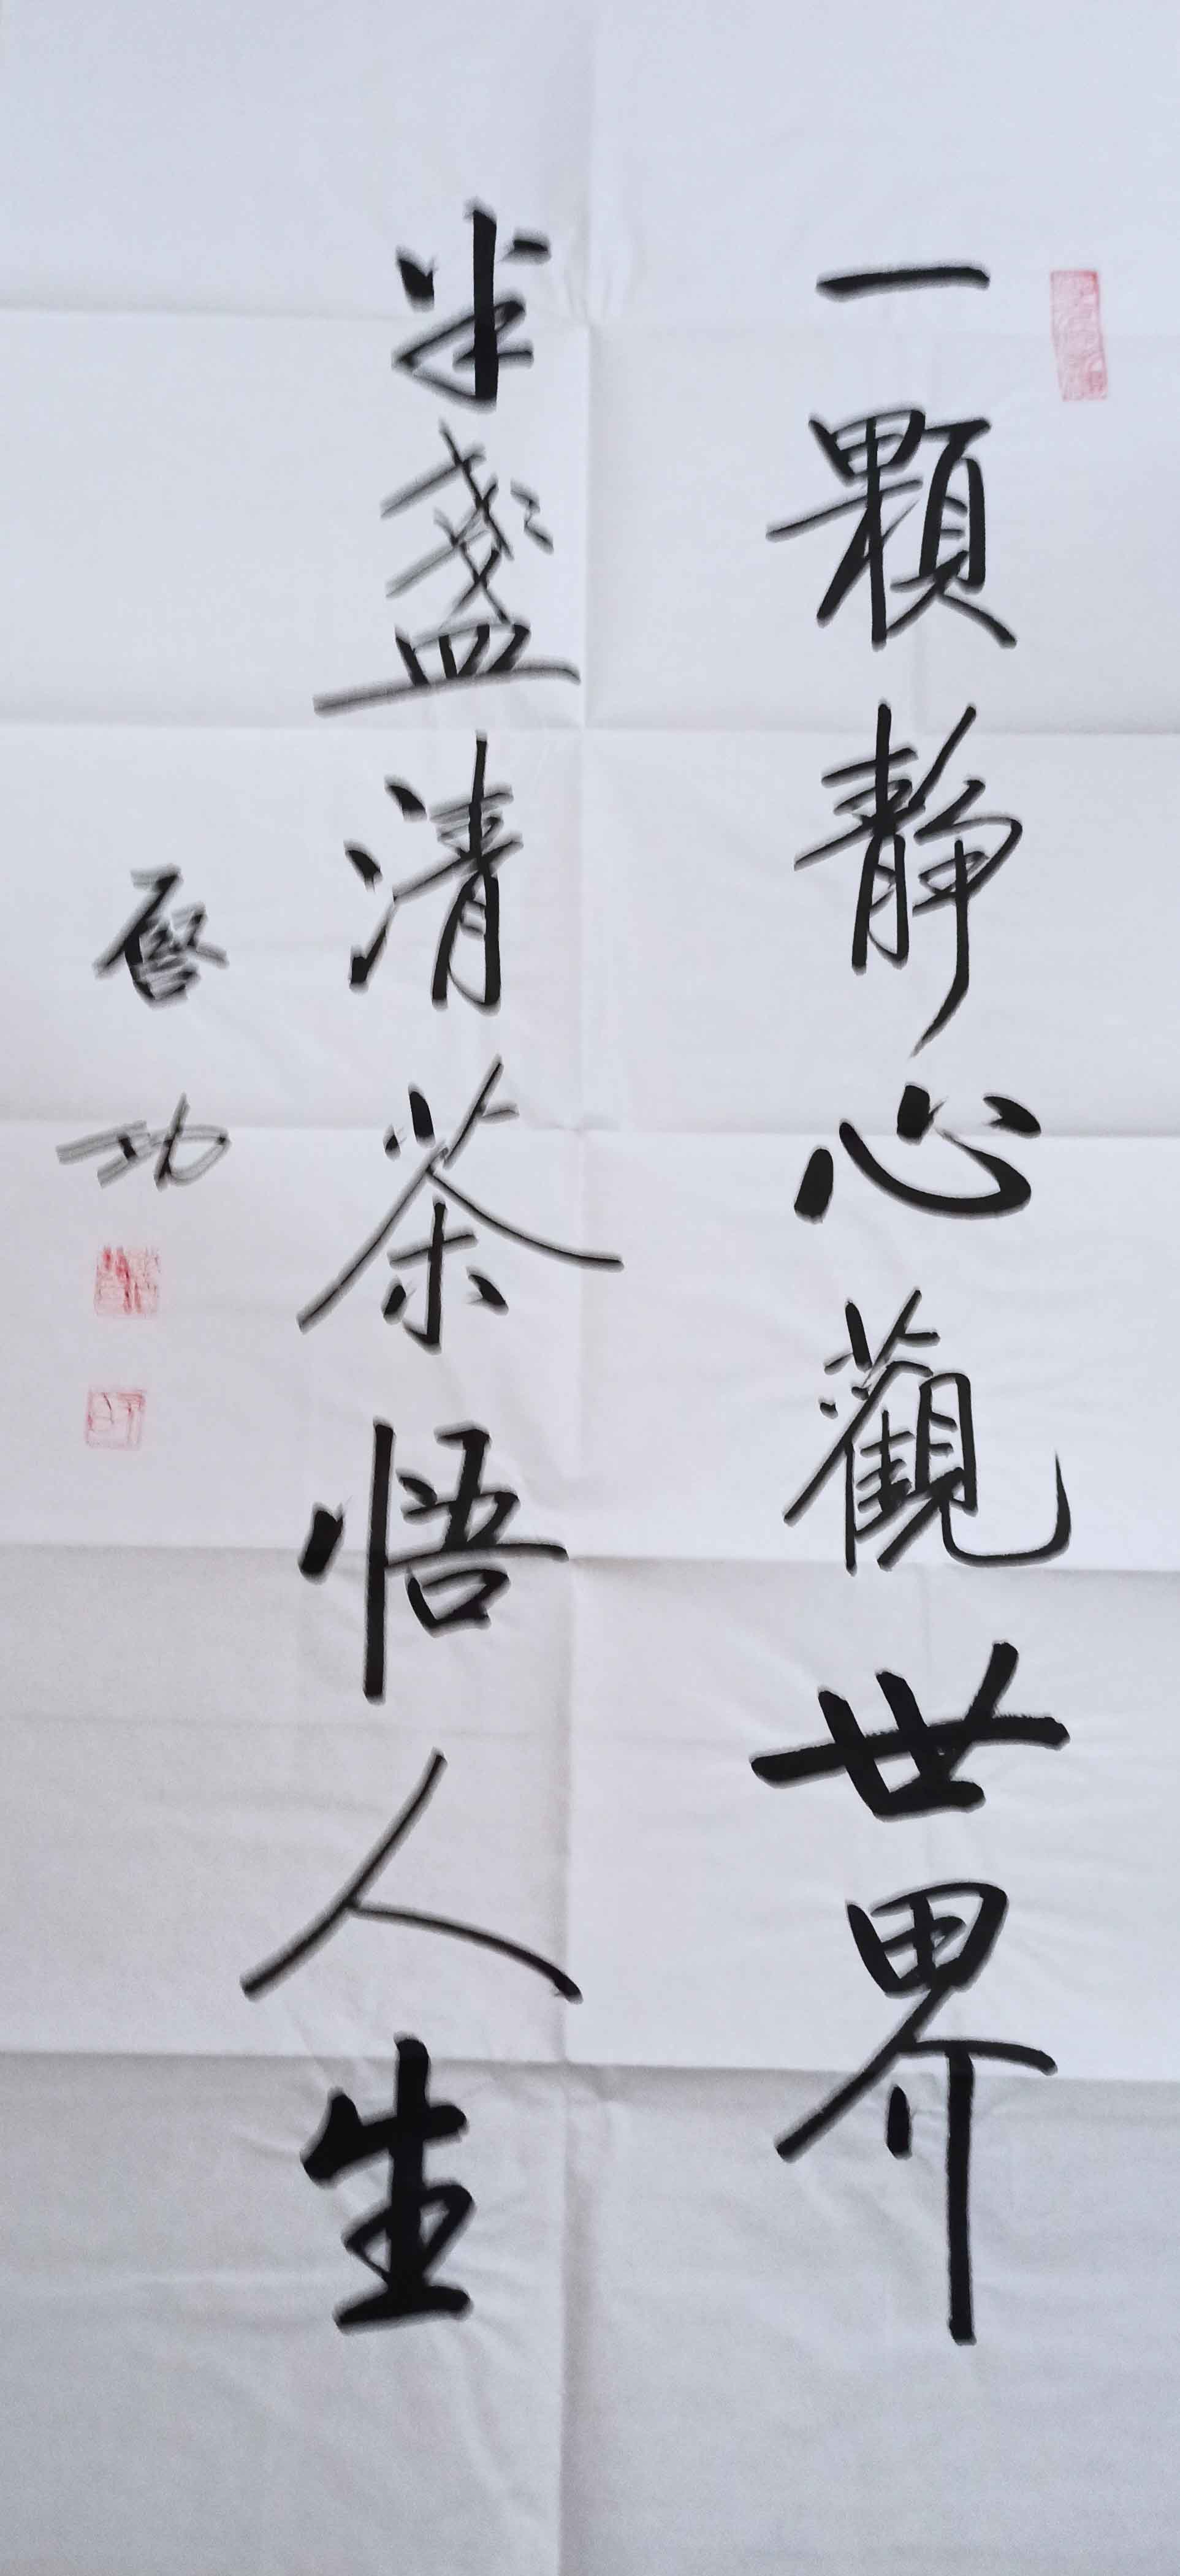 一顆靜心觀世界
半盞清茶悟人生
啓功